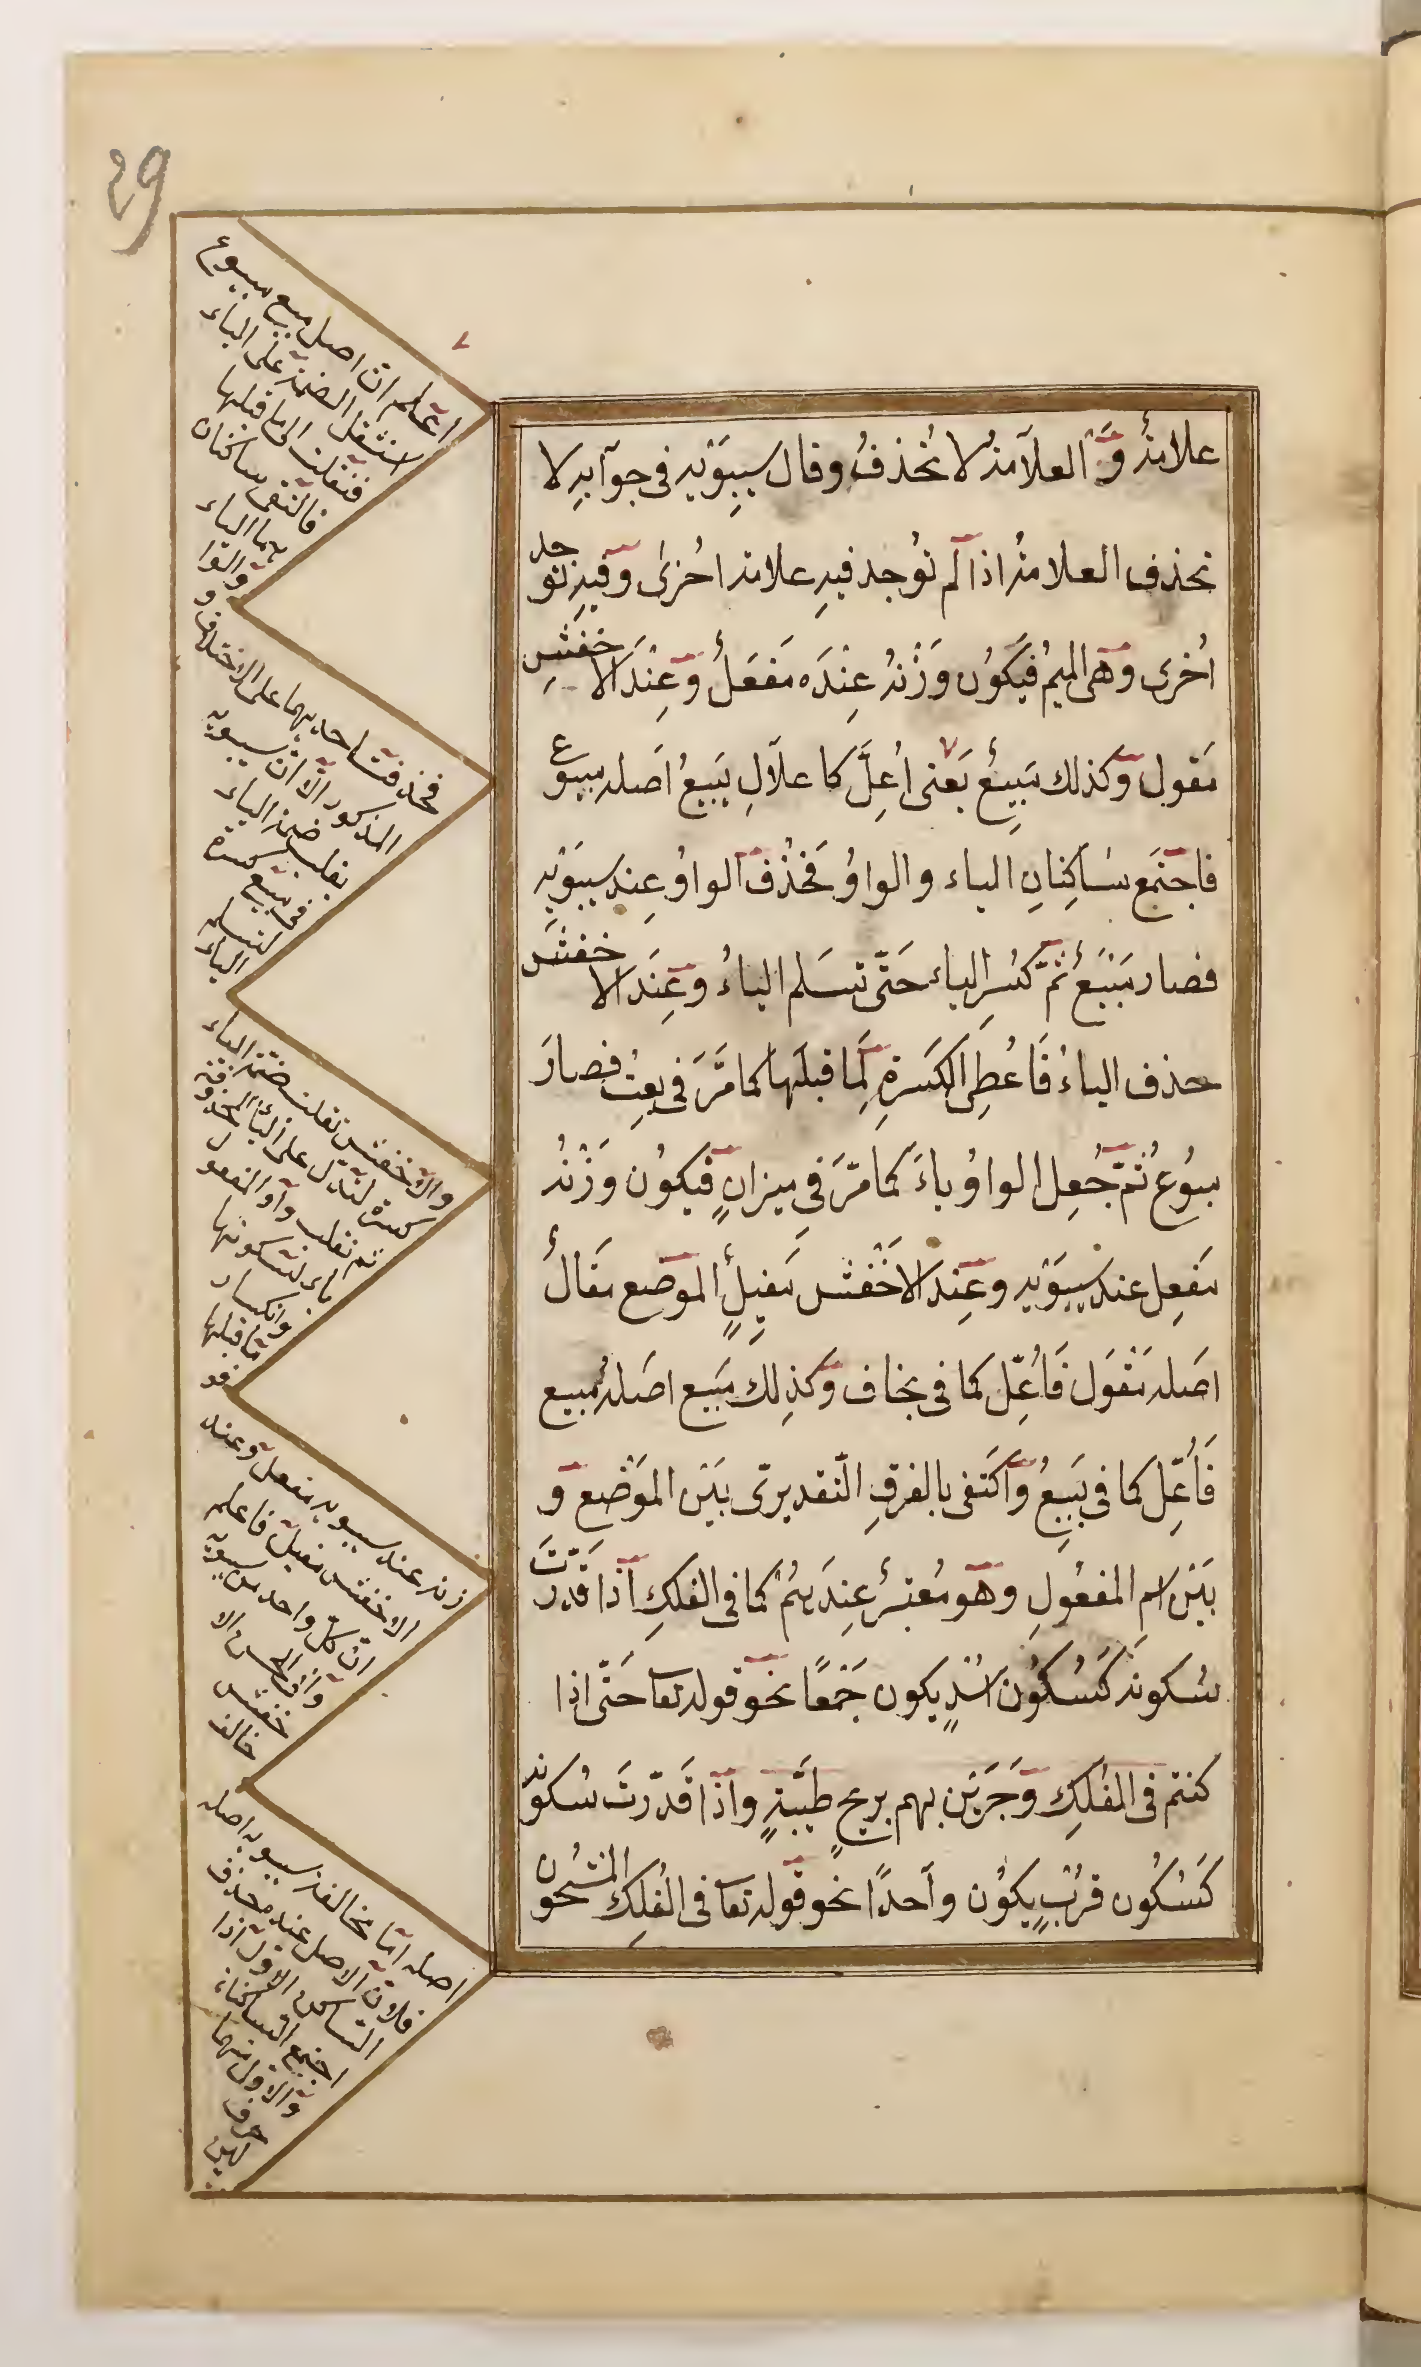 29
علامةٌ وَالعلامةُ لا تُحْذفُ وقال سيبِوَيْهِ فى جوابِهِ لا
تحذف العلامةُ اذا لم توُجد فيهِ علامة اُخرىٰ وفيهِ توجد
اُخرى وهى الميمُ فيَكوُن وَزْنهُ عِنْدَه مَفعَلٌ وَعِنْدَ الاخفشِ
مَقول وَكذلك مَبِيعٌ يَعنى اُعِلَّ كاعلاَلِ يَبيعُ اَصله مبيوع
فاجتمَع سٰاكِنانِ الياء والواوُ فَحُذْفَ الواوُ عِند سيبَوَيْهِ
فصار مَبْيُعٌ ثمّ كسِر الياء حَتّى تسَلم الياءُ وَعِنَد الاخفش
حذف الياءُ فَاُعطِى الكَسَرةِ لِمَا قبلَها كما مَّرَ فى بِعْتُ فصارَ
مبوُعٌ ثُمّ جُعِل الواوُ ياءً كما مّرَ فىِ ميزانٍ فَيكوُن وَزْنهُ
مَفعِل عند سيبَوَيْهِ وعِند الاَخْفَش مَفيِلٌ الموضع مَقالٌ
اصَله مَقْوَل فَاُعِّل كما فى يخاف وَكذلِك مَبيع اصَلهُ مَبيع
فَاُعِّل كما فى يَبيعُ وَاكتَفى بالفرقِ التّقديرىّ بَيْن المَوْضع وَ
بَيْن اسم المفعوُلِ وهَو مُعتبرٌ عِندَهُمْ كما فى الفلكِ اذا قَدّرْتَ
سُكونَه كَسُكوُن اسُدٍ يكون جَمْعًا نحَو قوله تعا حَتّى اذا
كنتم فى الفُلكِ وَجَرَيْن بهم بريحٍ طَيّبةٍ واذا قَدّرتَ سُكونه
كَسُكُون قرُبٍ يكوُن واَحدًا نحو قوله تعا فى الفُلكِ المَشحُون
اعلم انّ اصل مبيع مبيوع
استثقل الضمة على الياء
فنقلت الى ما قبلها
فالتقى ساكنان
هما الياء
والوا
و
فحذفت احديهما على الاختلاف
المذكور الّا انّ سيبويه
يقلب ضمة الياء
فى مبيع كسرة
لتسلم
الياء
والاخفش نقلت ضمة الياء
كسرة لتدّل على الياء المحذوفة
ثم تقلب واو المفعول
ياء لسكونها
وانكسار
ما قبلها
فو
زنه عند سيبويه مفعل وعند
الاخفش مفيل فاعلم
انّ كلّ واحد من سيبويه
وابى الحسن الا
خفش
خالف
اصله امّا مخالفة سيبويه اصله
فلانّ الاصل عنده حذف
السّاكن الاوّل اذا
اجتمع السّاكنان
والاوّل منهما
حرف
لين